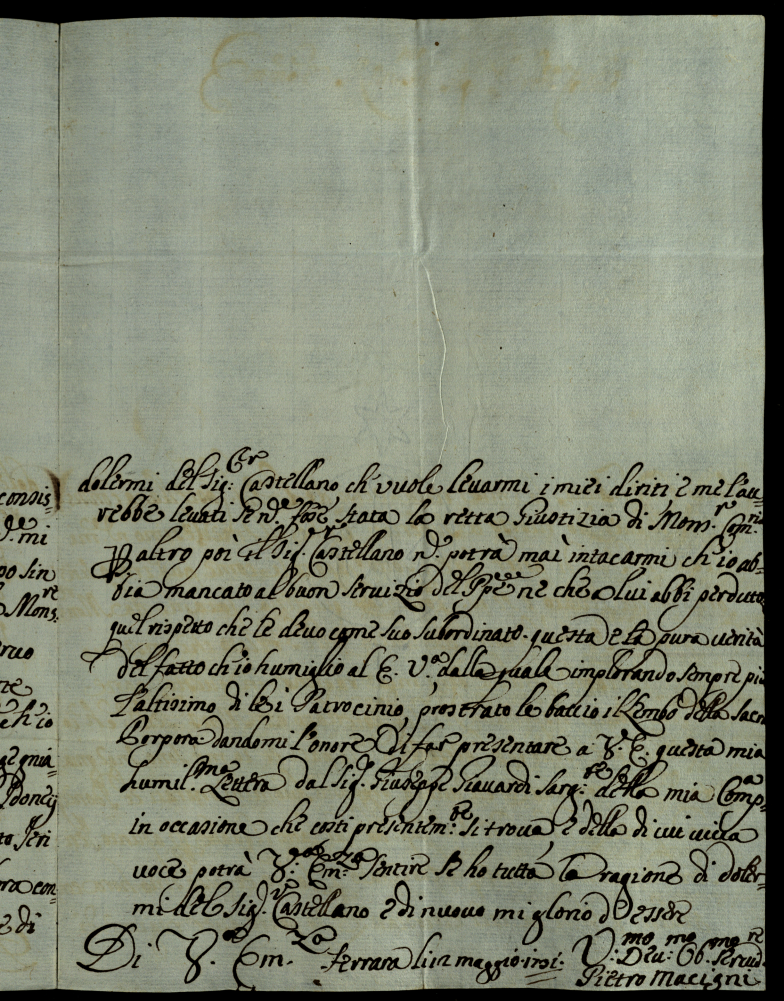 consis=
mi
po sin
Mons.
ruo
rte
ch'io
gegnia=
to Jeri
ra con=
e di
dolermi del Sig.r Castellano, ch'vuole levarmi i miei diriti e me l'au=
rebbe levati se n.e fose stata la retta Giustizia di Mons.r Com.rio
P altro poi il Sig.r Castellano n.e potrà mai intacarmi ch'io ab=
bia mancato al buon servizio del Ppe ne che a lui abbi perdutto
quel rispetto che le devo come suo subordinato. questa e la pura verità
del fatto ch'io humiglio al E. V.a dalla quale implorando sempre più
l'altissimo di lei Patrocinio, prostrato le baccio il Lembo della sacra
Porpora dandomi l'onore di far presentare a V. E. questa mia
humil.ma Lettera dal Sig.r Giuseppe Giavardi Sarg.te della mia Comp.a
in occasione che costi presentem.te si trova e della di cui viva
voce potrà V.a Em.za sentire se ho tutta la ragione di doler=
mi del Sig.r Castellano e di nuovo mi glorio d'essere
Di V.a Em.za Ferrara li 12 maggio U.mo Deu.mo Ob.mo Seruid.re
Pietro Macigni